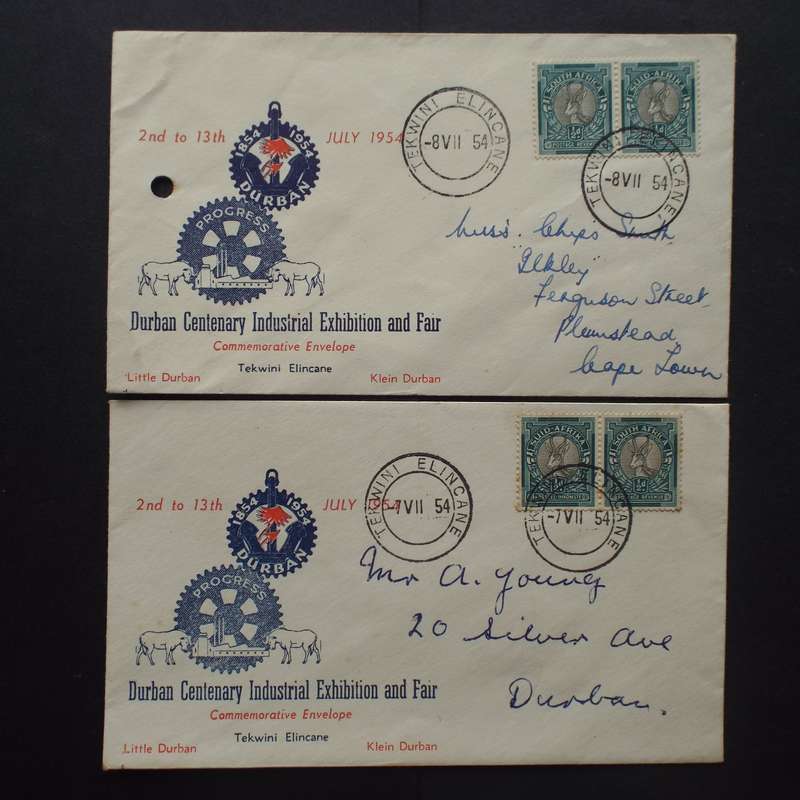 2nd to 13th JULY 1954
1854 1954
DURBAN
PROGRESS
Durban Centenary Industrial Exhibition and Fair
Commemorative Envelope
Little Durban Tekwini Elincane Klein Durban
TEKWINI ELINCANE
-8 VII 54
SOUTH AFRICA
½D
SUID-AFRIKA
½D
TEKWINI ELINCANE
-8 VII 54
Chips Smith
"Ilkley"
Ferguson Street
Plumstead
Cape Town
2nd to 13th JULY 1954
1854 1954
DURBAN
PROGRESS
Durban Centenary Industrial Exhibition and Fair
Commemorative Envelope
Little Durban Tekwini Elincane Klein Durban
TEKWINI ELINCANE
-7 VII 54
SUID-AFRIKA
½D
SOUTH AFRICA
½D
TEKWINI ELINCANE
-7 VII 54
Mr A. Young
20 Silver Ave
Durban.